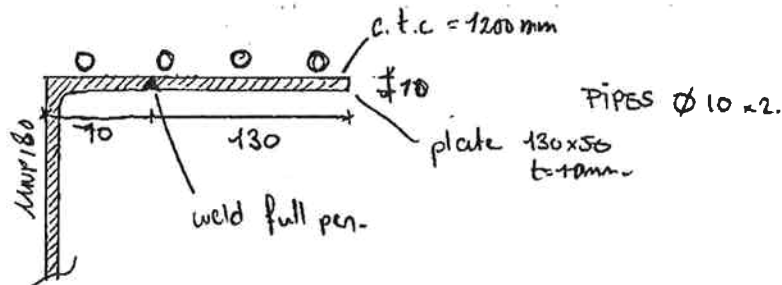 c.t.c = 1200 mm
10
PIPES Ø 10 x 2.
70
130
plate 130x50
t=10mm.
UNP180
weld full pen.